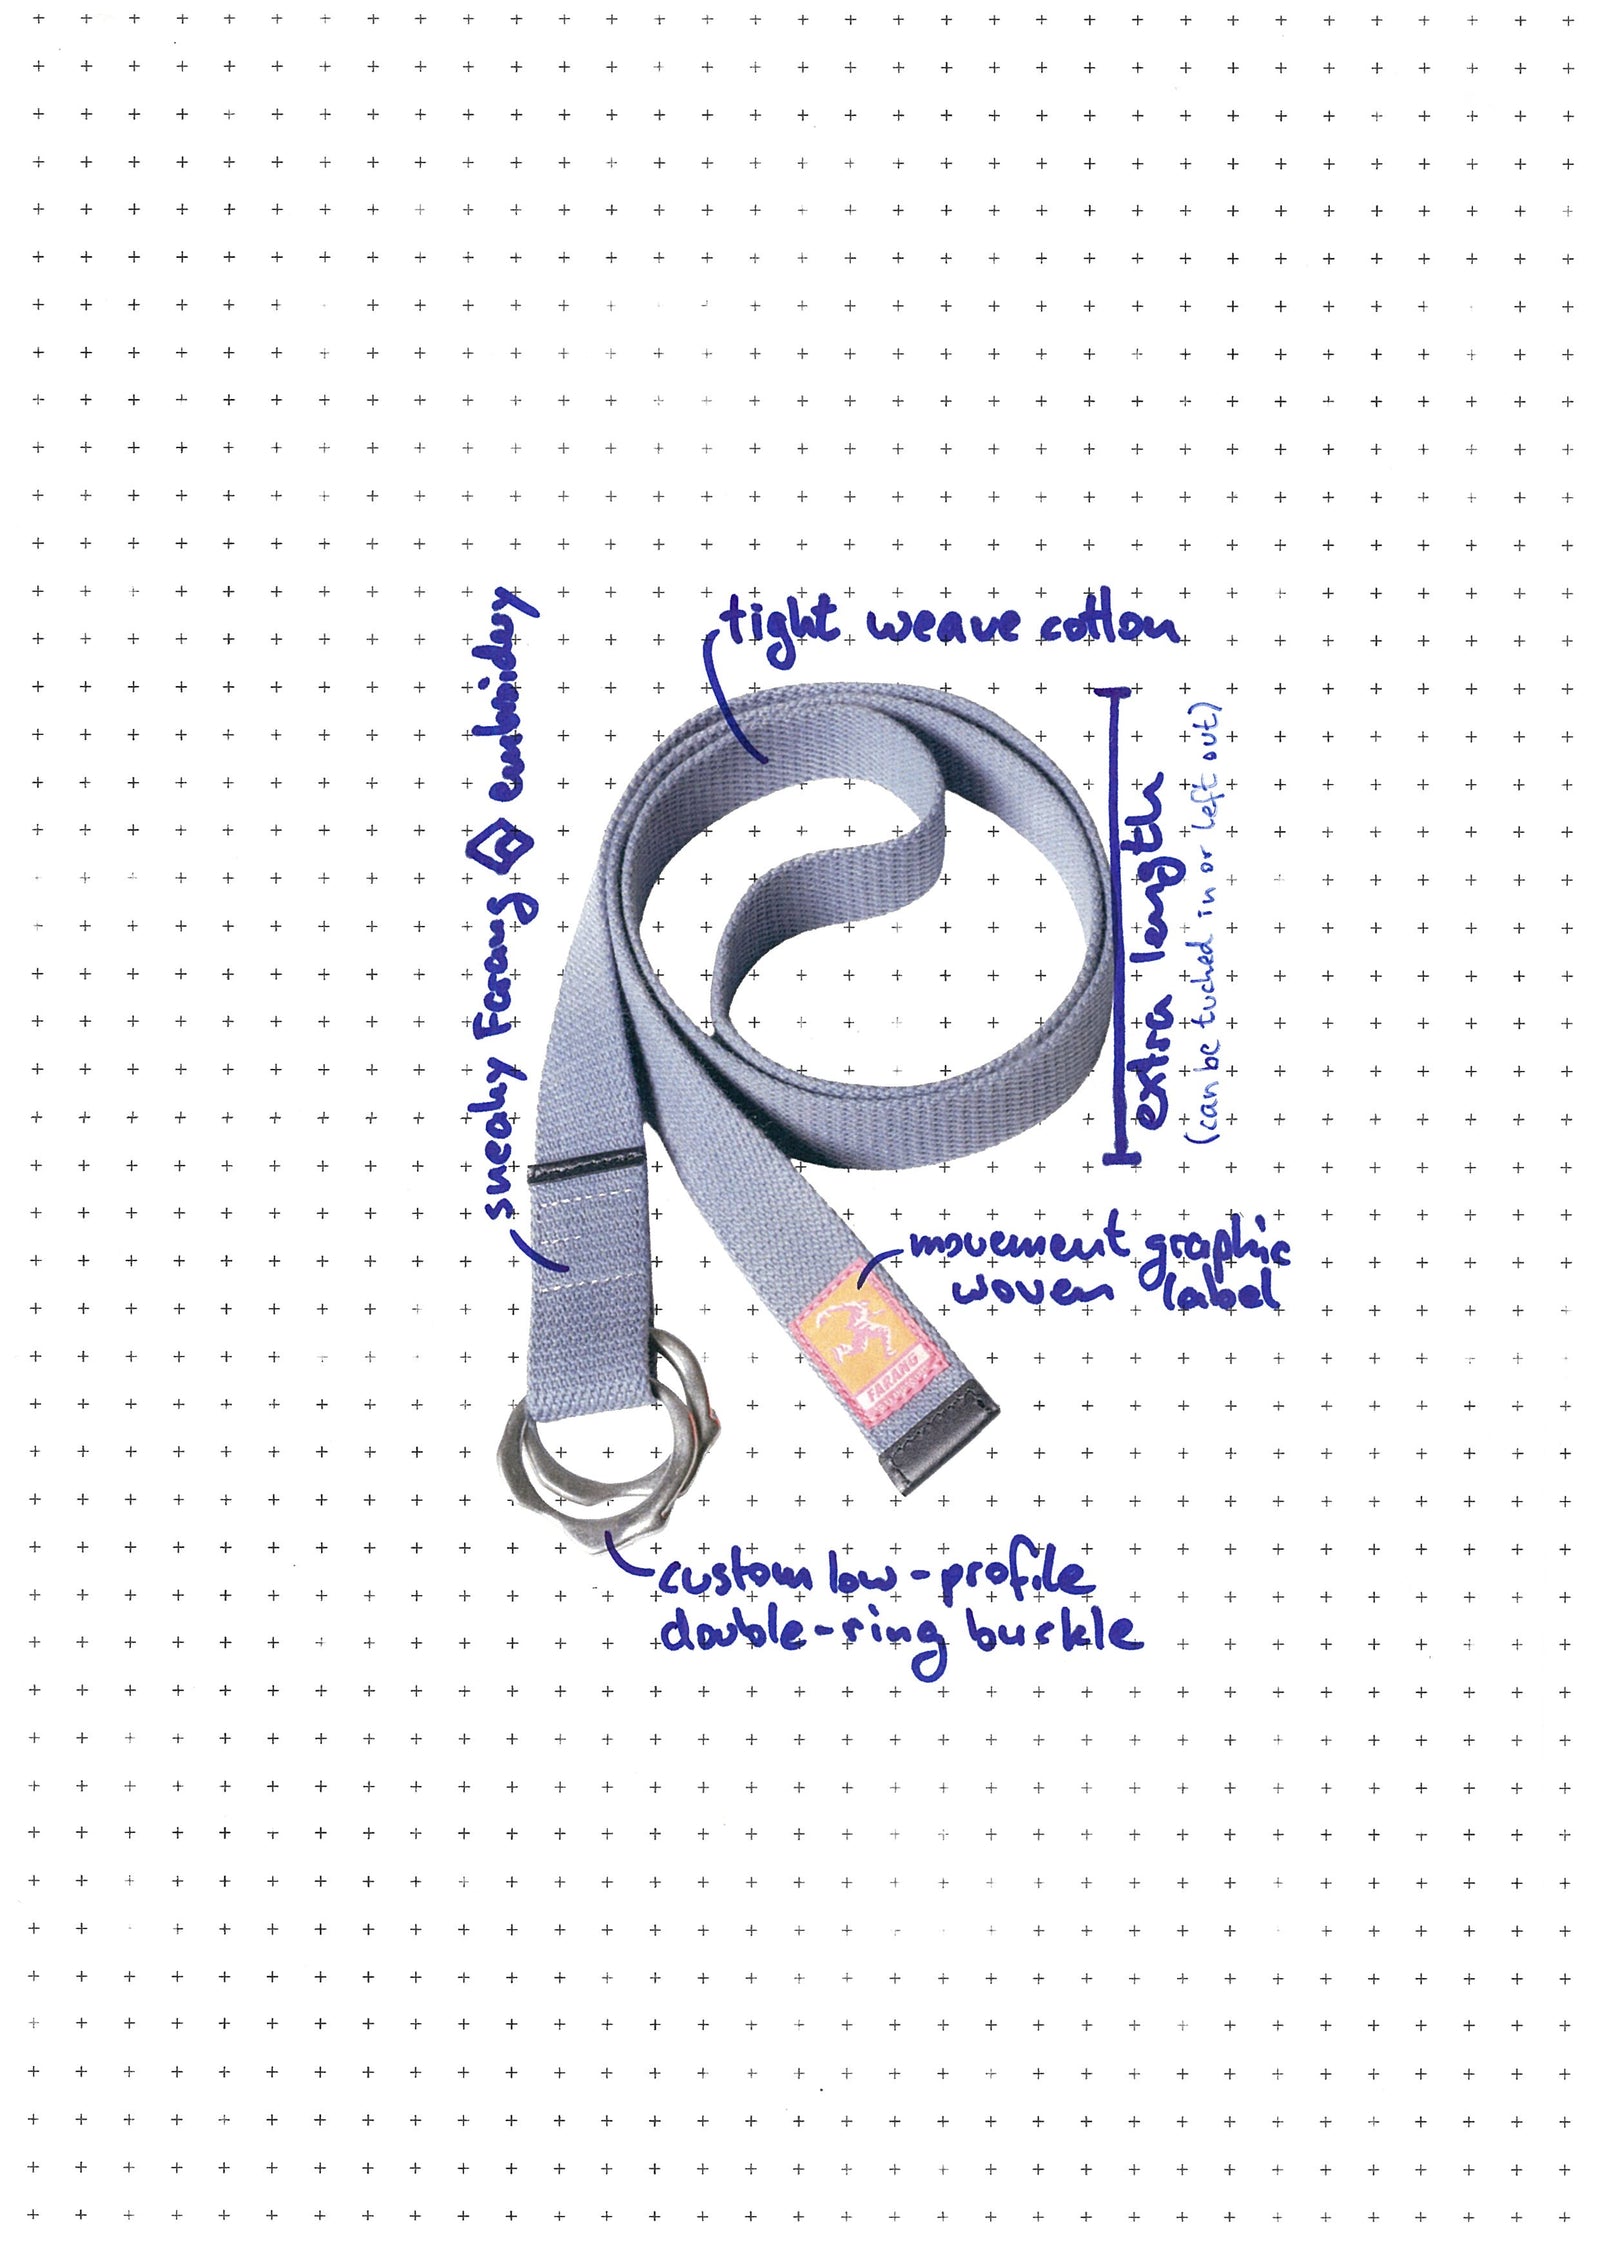 tight weave cotton
sneaky Farang embroidery
extra length
(can be tucked in or left out)
movement graphic
woven label
FARANG
custom low-profile
double-ring buckle